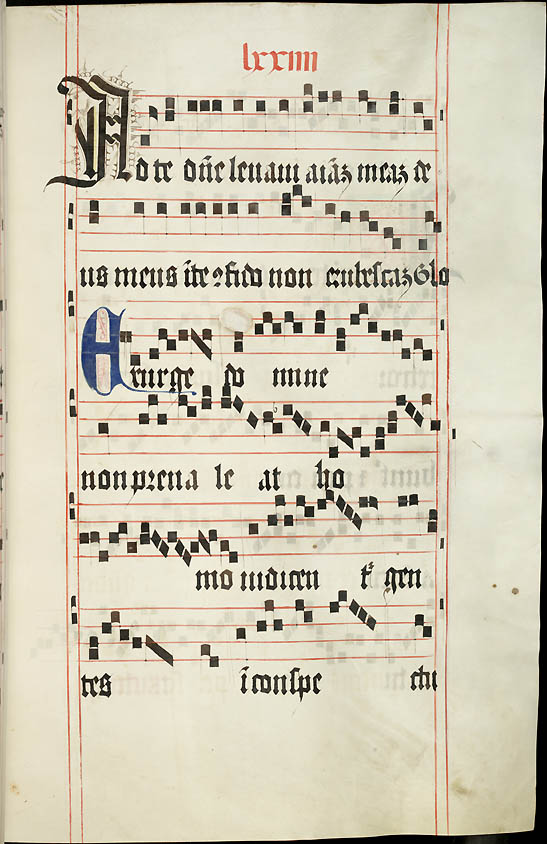 lxxiiii
Ad te dñe leuaui aĩaʒ meaʒ de
us meus ĩ te ꝯfido non erubescaʒ Glo
Exurge do mine
non preua le at ho
mo iudicen tʳ gen
tes ĩ conspe ctu